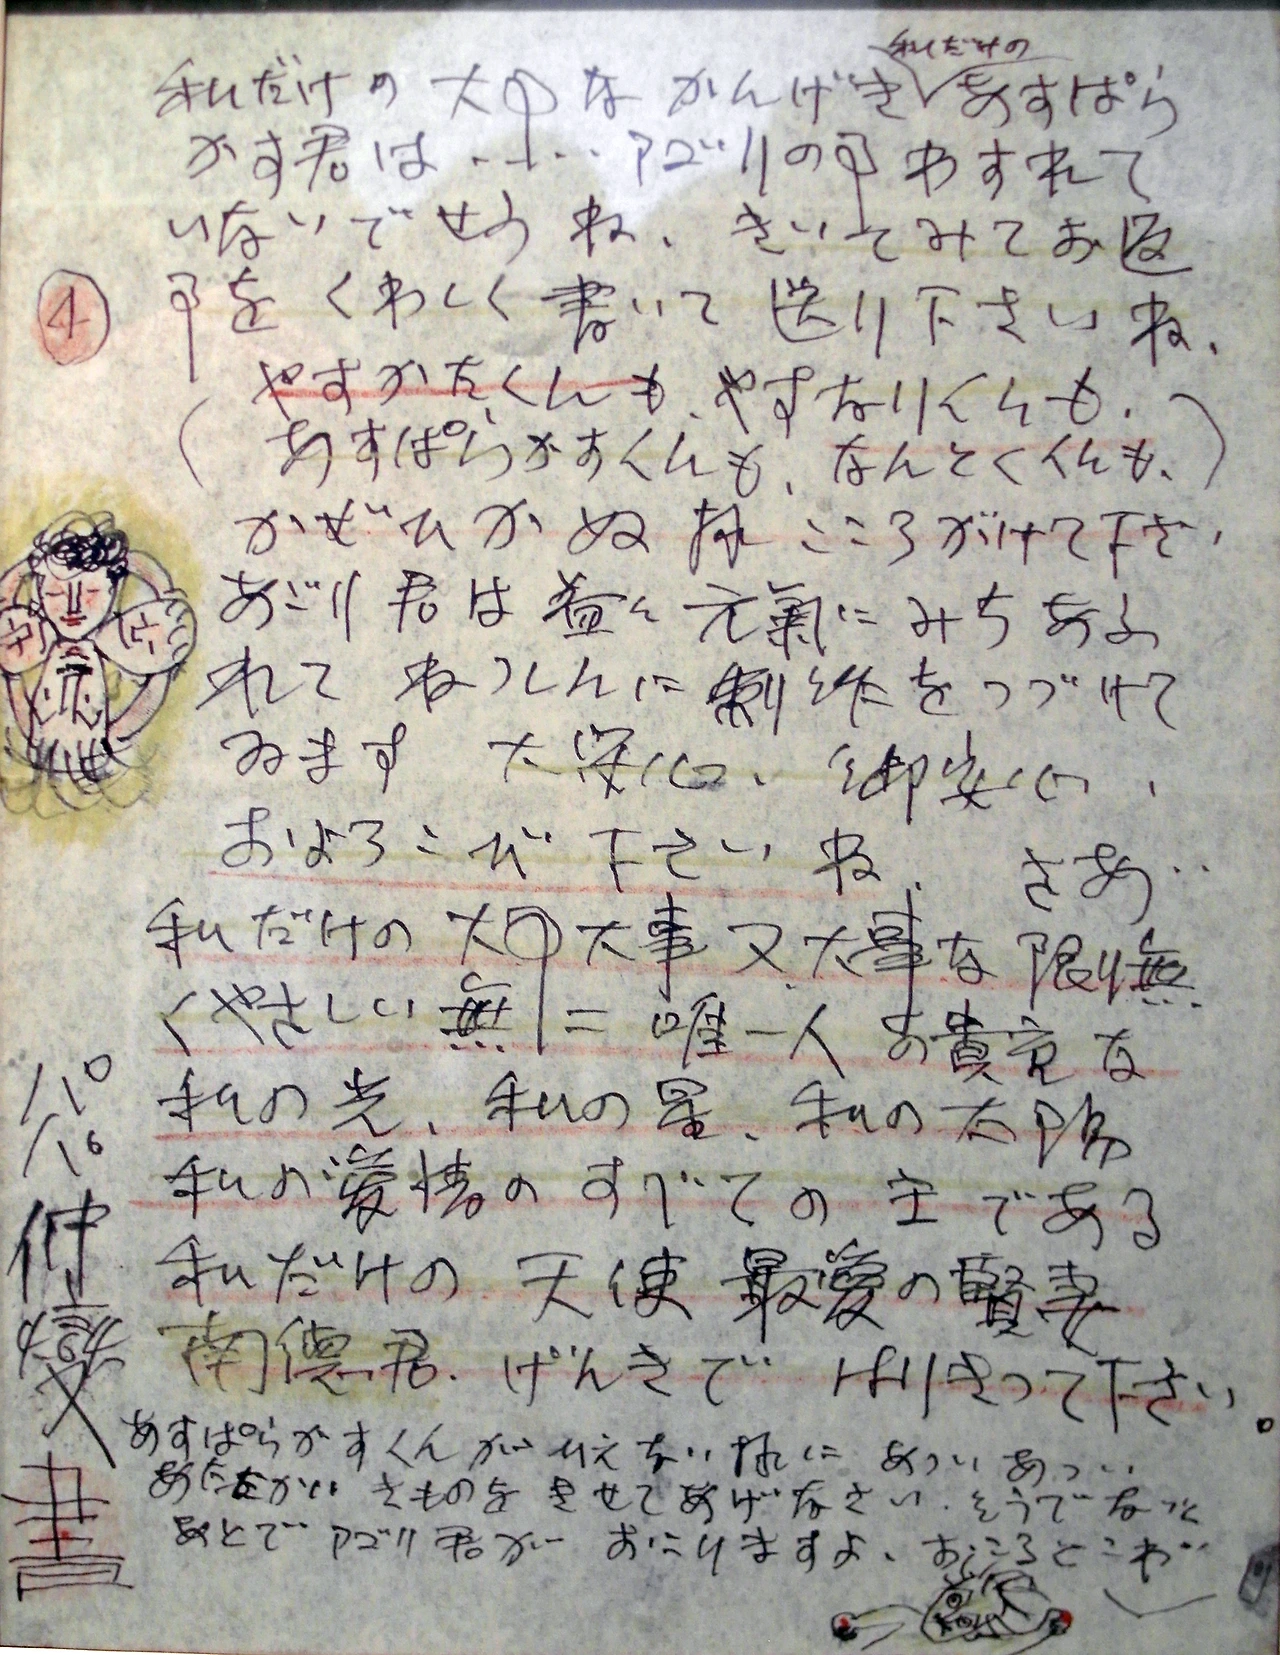 私だけの
私だけの大事なかんげき あすぱら
がす君は・・・・・アゴリの事わすれて
いないでせうね、きいてみてお返
④
事をくわしく書いて送り下さいね、
やすかたくんも、やすなりくんも、
(あすぱらがすくんも、なんとくくんも、)
かぜひかぬ様こころがけて下さい
あごり君は益々元氣にみちあふ
れてねっしんに制作をつづけて
ゐます 大安心、御安心、
およろこび下さいね、さあ・・
私だけの大事大事又大事な限り無
くやさしい無二唯一人の貴重な
私の光、私の星、私の太陽
私の愛情のすべての主である
私だけの天使最愛の賢妻
南德君.げんきで はりきって下さい。
あすぱらがすくんがひえない様に あついあつい
あたたかいきものをきせてあげなさい.そうでないと
あとでアゴリ君がおこりますよ、おころとこわい
パパ仲燮
書